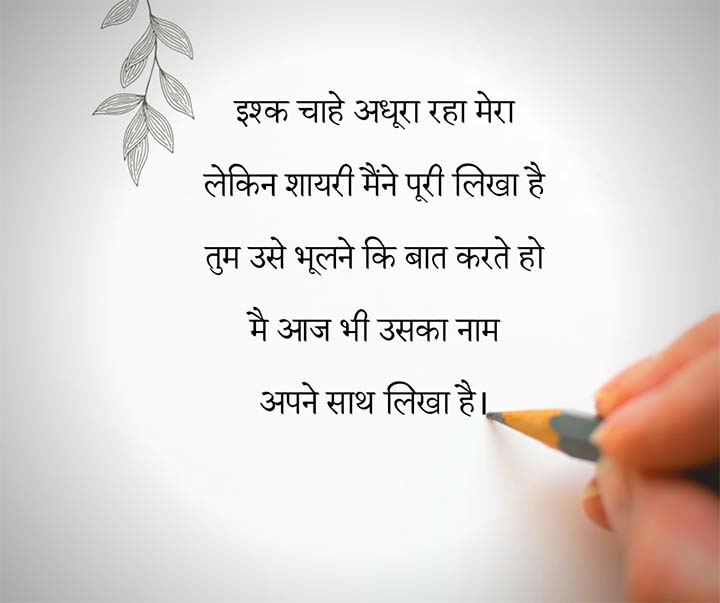 इश्क चाहे अधूरा रहा मेरा
लेकिन शायरी मैंने पूरी लिखा है
तुम उसे भूलने कि बात करते हो
मै आज भी उसका नाम
अपने साथ लिखा है।